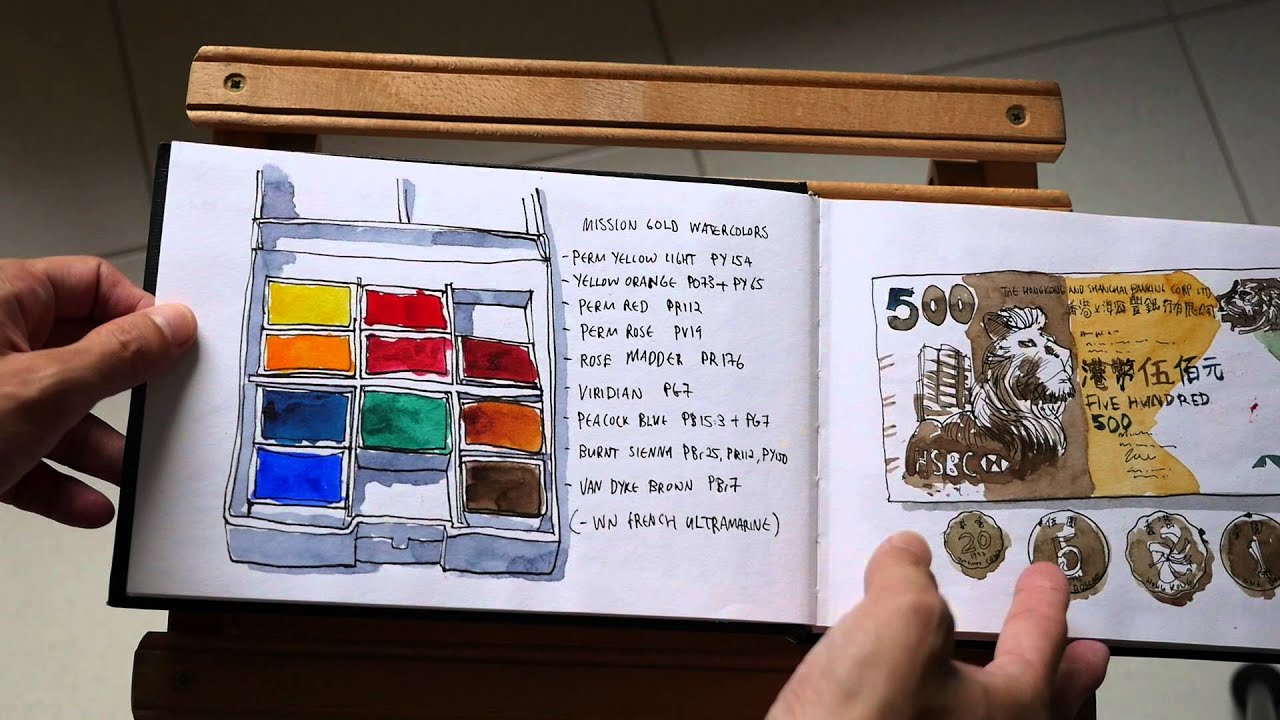 MISSION GOLD WATERCOLORS
- PERM YELLOW LIGHT PY154
- YELLOW ORANGE PO73 + PY65
- PERM RED PR112
- PERM ROSE PV19
- ROSE MADDER PR176
- VIRIDIAN PG7
- PEACOCK BLUE PB15:3 + PG7
- BURNT SIENNA PBr25, PR112, PY150
- VAN DYKE BROWN PBr7
(- WN FRENCH ULTRAMARINE)
500
THE HONGKONG AND SHANGHAI BANKING CORP LTD
港幣伍佰元
FIVE HUNDRED
500
HSBC
香港
20
伍圓
5
香港
HONG KONG